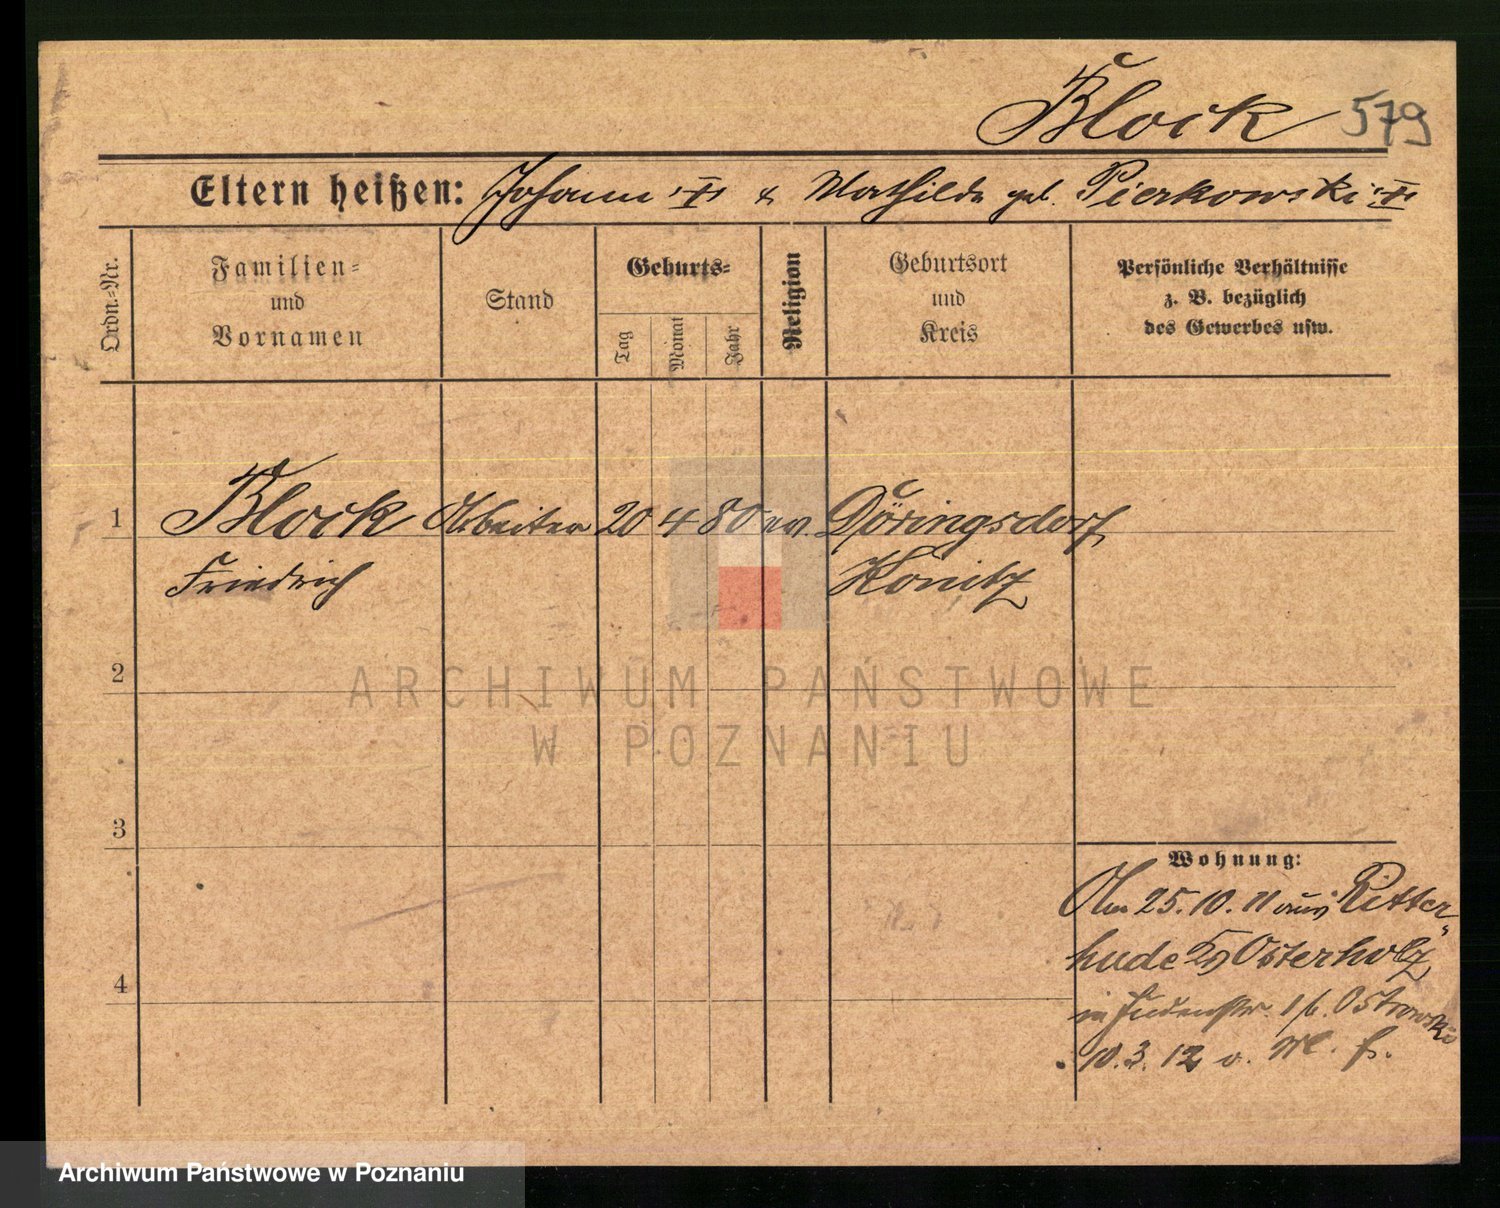 Block 579
Eltern heißen: Johann & Mathilde geb. Pierkowski
Ordn=Nr.
Familien=
und
Vornamen
Stand
Geburts=
Tag
Monat
Jahr
Religion
Geburtsort
und
Kreis
Persönliche Verhältnisse
z. B. bezüglich
des Gewerbes usw.
1 Block Arbeiter 20 4 80 ev. Döringsdorf
Friedrich Konitz
2
ARCHIWUM PAŃSTWOWE
W POZNANIU
3
4
Wohnung:
Am 25.10.11 aus Ritter=
hude Osterholz
in Judenstr. 1 b. Ostrowski
10.3.12 v.
Archiwum Państwowe w Poznaniu